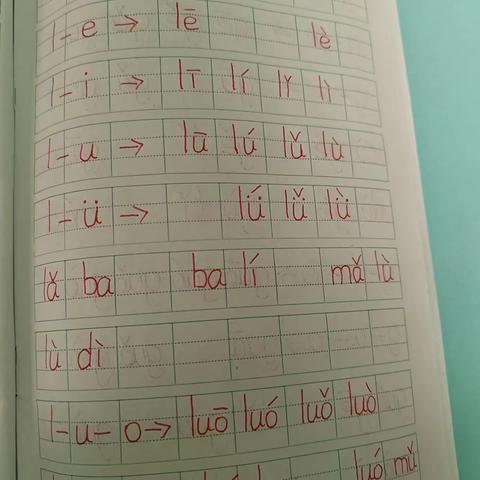 l-e→lē lè
l-i→lī lí lǐ lì
l-u→lū lú lǔ lù
l-ü→lǘ lǚ lǜ
lǎ ba ba lí mǎ lù
lù dì
l-u-o→luō luó luǒ luò
luó mǔ